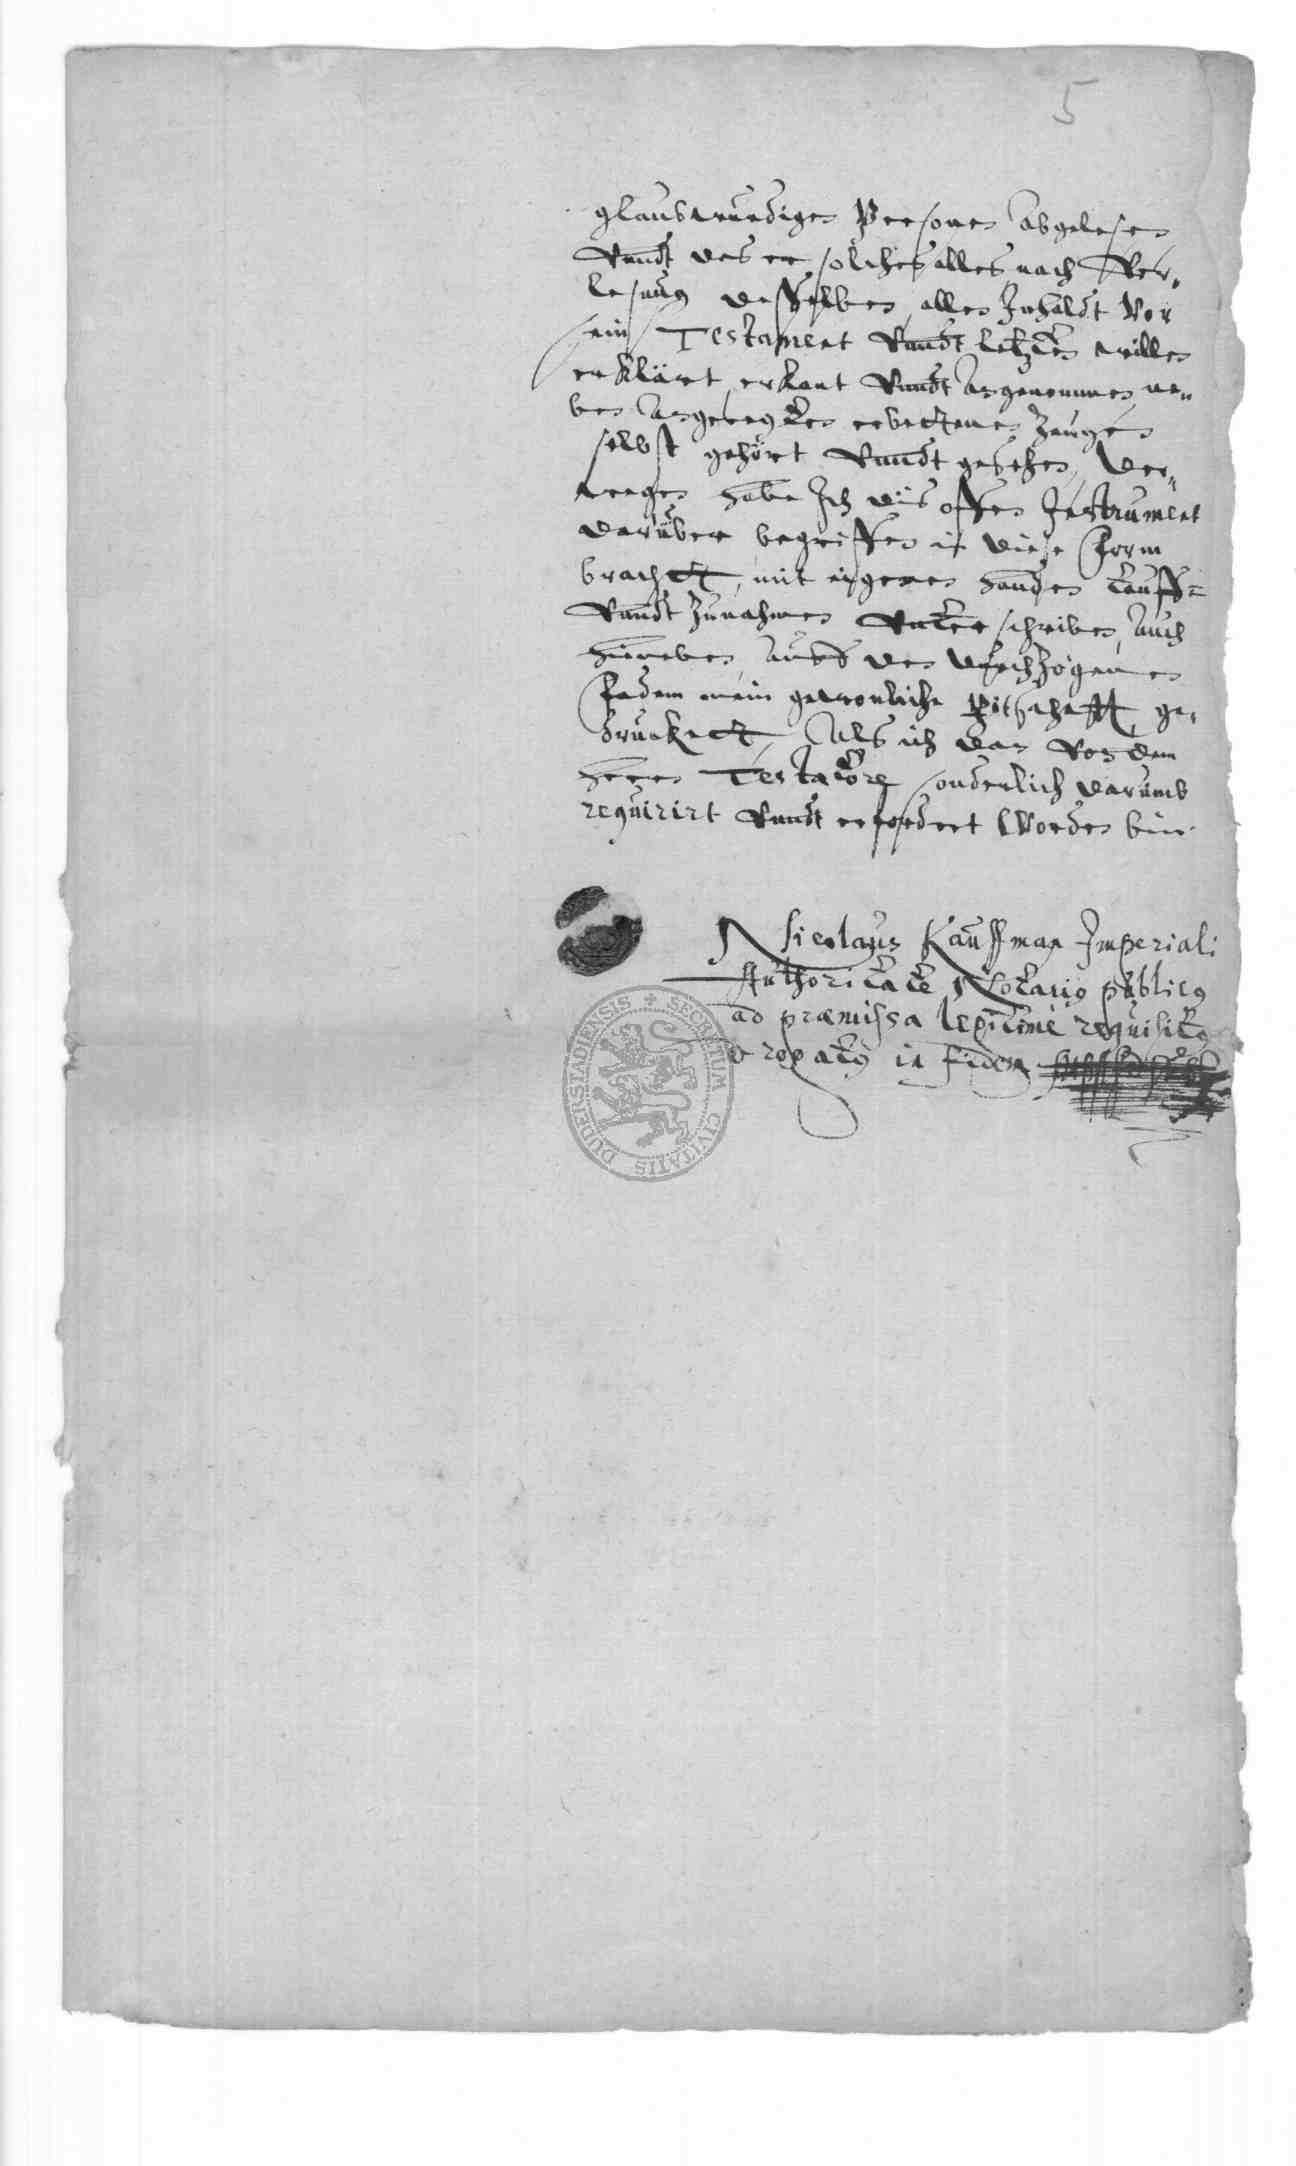 5
glaubwurdigen Personen abgelesen
Vnndt das er solches alles nach Ver„
lesung desselben allen Inhaldt Vor
sein Testament Vnndt letzten willen
erklärt erkant Vnndt angenommen ne„
ben angeregten erbettenen Zeugen
selbst gehört Vnndt gesehen, Der„
wegen habe Ich dis offen Instrument
darüber begriffen in diese Form
bracht, mit eigenen handen tauff=
Vnndt Zunahmen Vnter schriben, Auch
hirneben auff den durchzogenen
Fadem mein gewonliche Pitschafft ge„
druckett, Als ich dan Von dem
hern Testatore sonderlich darumb
requirirt Vnndt erfordert Worden bin.
Nicolaus Kauffman Imperiali
Authoritate Notarius publicus
ad præmissa legitimè requisitus
& rogatus in fidem
SECRETUM CIVITATIS DUDERSTADIENSIS